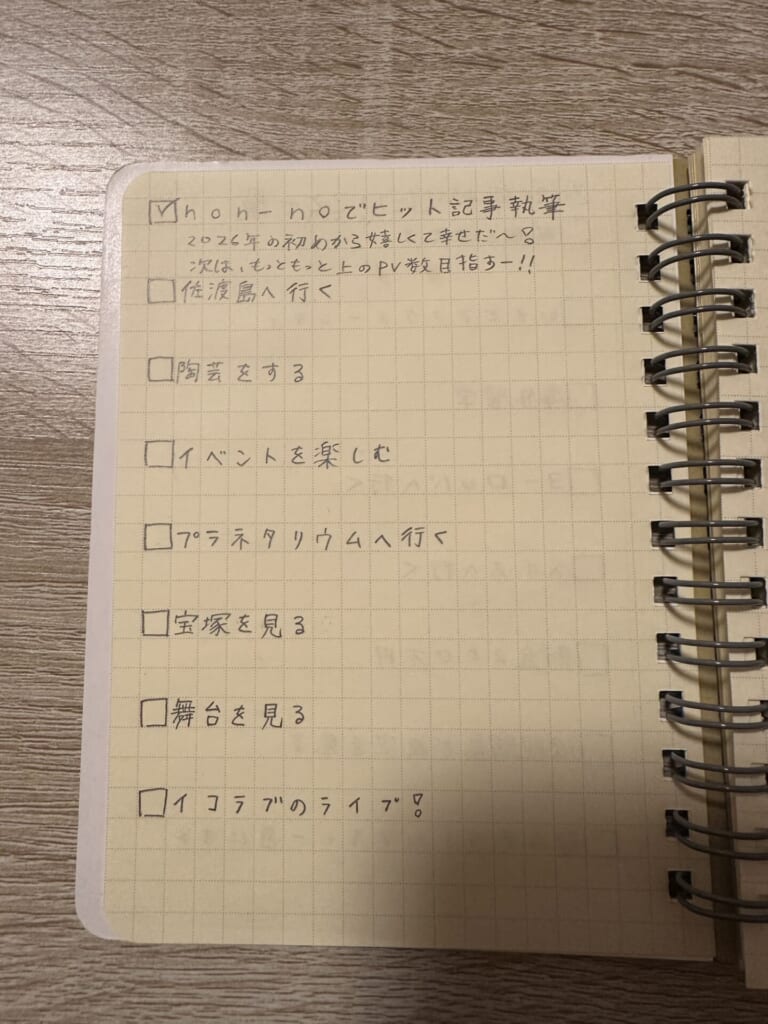 ☑hon-noでヒット記事執筆
2026年の初めから嬉しくて幸せだ〜!
次は、もっともっと上のPV数目指すー!!
☐佐渡島へ行く
☐陶芸をする
☐イベントを楽しむ
☐プラネタリウムへ行く
☐宝塚を見る
☐舞台を見る
☐イコラブのライブ!